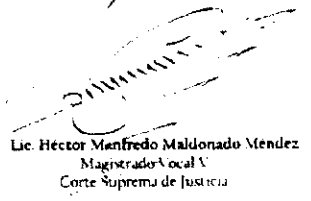 Lic. Héctor Manfredo Maldonado Méndez
Magistrado Vocal V
Corte Suprema de Justicia